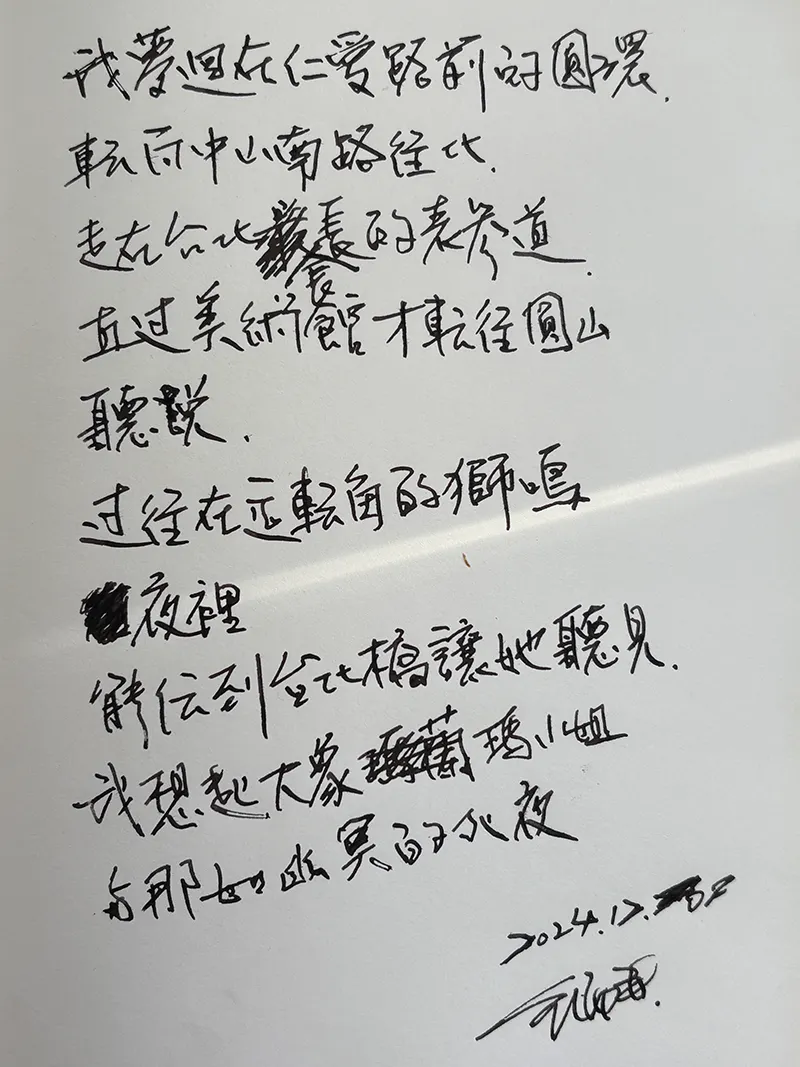 我夢迴在仁愛路前的圓環.
転百中山南路往北.
走在台北最長的表參道.
直过美術館才転往圓山
聽説.
过往在迴転角的獅鳴
夜裡
能伝到台北橋讓她聽見.
我想起大象 瑪小姐
与那如幽冥的北夜
2024.12.